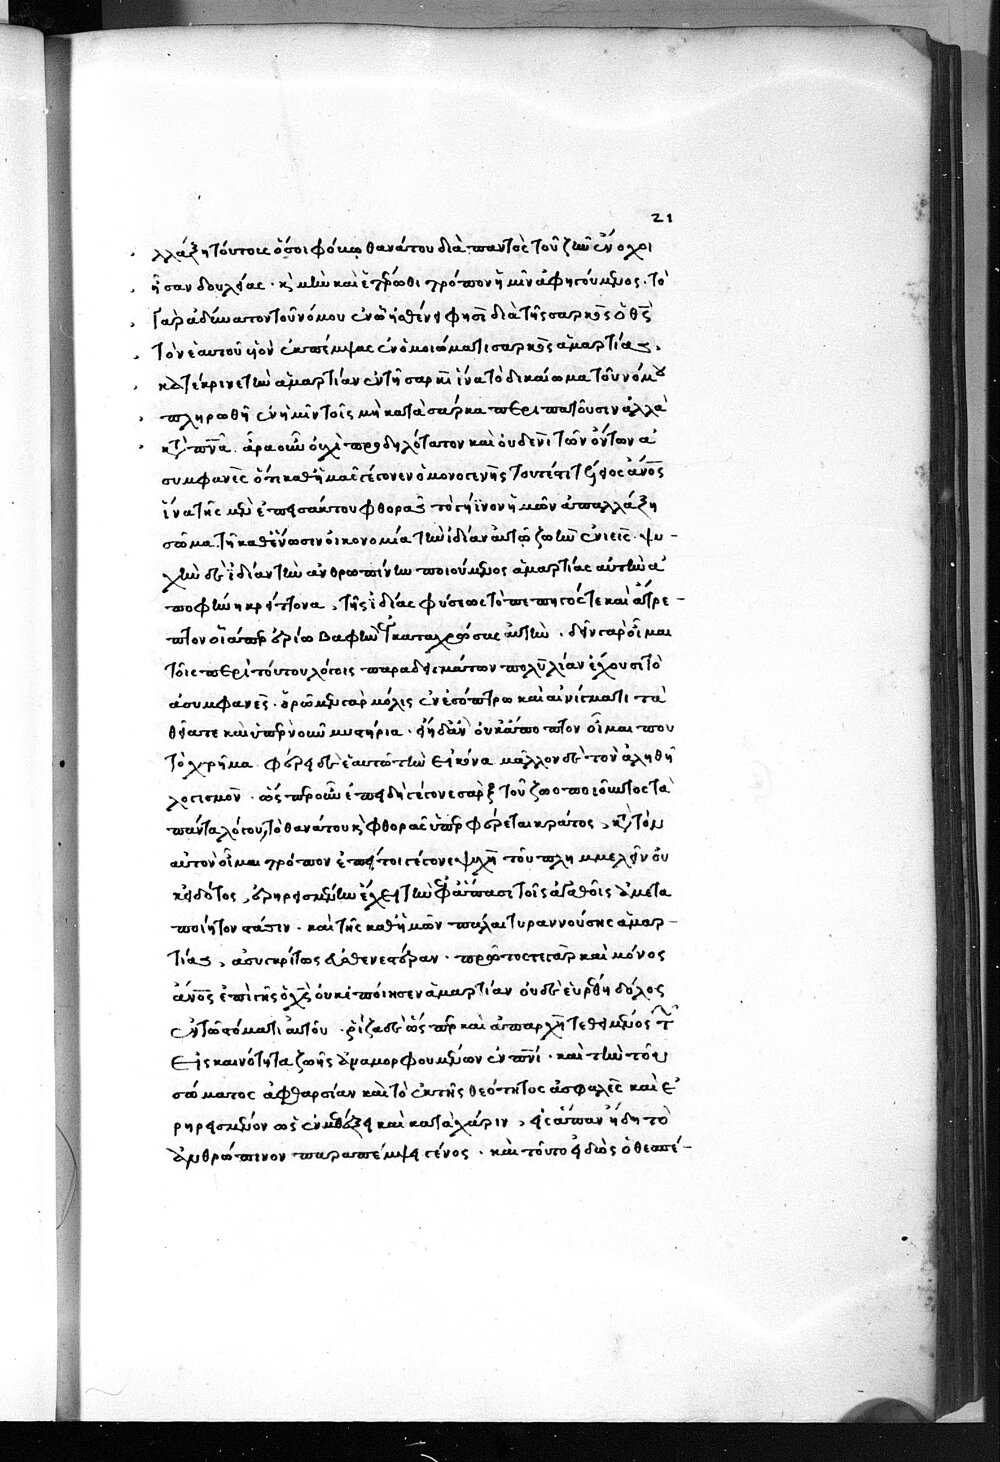 21
λλάξη τούτους ὅσοι φόβω θανάτου διὰ παντὸς τοῦ ζῆν ἔνοχοι
ἦσαν δουλείας · κ μὴν καὶ ἑτέρωθι τρόπον ἡμῖν ἀφηγούμενος · τὸ
γὰρ ἀδύνατον τοῦ νόμου ἐν ὧ ἠσθένει φησὶ διὰ τῆς σαρκὸς ὁ θς
τὸν ἑαυτοῦ υἱὸν ἐκπέμψας ἐν ὁμοιώματι σαρκὸς ἁμαρτίας,
κατέκρινε τὴν ἁμαρτίαν ἐν τῆ σαρκὶ ἵνα τὸ δικαίωμα τοῦ νόμου
πληρωθῆ ἐν ἡμῖν τοῖς μὴ κατὰ σάρκα περιπατοῦσιν ἀλλὰ
κτ πνα. ἆρα οὖν οὐχὶ προδηλότατον καὶ οὐδενὶ τῶν ὄντων ἀ
συμφανὲς ὅτι καθ ἡμᾶς γέγονεν ὁ μονογενὴς τουτέστι τέλειος ἄνος
ἵνα τῆς μὲν ἐπεισάκτου φθορᾶς τὸ γήϊνον ἡμῶν ἀπαλλάξη
σῶμα τῆ καθ ἕνωσιν οἰκονομία τὴν ἰδίαν αὐτῶ ζωὴν ἐνιεὶς · ψυ-
χὴν δὲ ἰδίαν τὴν ἀνθρωπίνην ποιούμενος ἁμαρτίας αὐτὴν ἀ
ποφήνη κρείττονα, τῆς ἰδίας φύσεως τὸ πεπηγός τε καὶ ἄτρε-
πτον οἷάπερ ἐρίω βαφὴν ἐγκαταχρώσας αὐτῆ ·
τοῖς περὶ τούτου λόγοις παραδειγμάτων ἔχουσι τὸ
ἀσυμφανὲς · ὁρῶμεν γὰρ μόλις ἐν ἐσόπτρω καὶ αἰνίγματι τὰ
θεῖά τε καὶ ὑπὲρ νοῦν μυστήρια · οὐκ ἄποπτον οἶμαι που
τὸ χρῆμα φέρει δὲ ἑαυτῶ τὴν εἰκόνα μᾶλλον δὲ τὸν ἀληθῆ
λογισμὸν · ὥσπερ οὖν ἐπειδὴ γέγονε σὰρξ τοῦ ζωοποιοῦντος τὰ
πάντα λόγου, τὸ θανάτου κ φθορᾶς ὑπερφέρεται κράτος, κτ τὸν
αὐτὸν οἶμαι τρόπον ἐπεί τοι γέγονε ψυχὴ τοῦ πλημμελεῖν οὐκ
εἰδότος, ἐρηρεισμένην ἔχει τὴν ἐφ ἅπασι τοῖς ἀγαθοῖς ἀμετα
ποίητον στάσιν · καὶ τῆς καθ ἡμῶν πάλαι τυραννούσης ἁμαρ-
τίας, ἀσυγκρίτως εὐσθενεστέραν · πρῶτός τε γὰρ καὶ μόνος
ἄνος ἐπὶ γῆς ὁ χς οὐκ ἐποίησεν ἁμαρτίαν οὐδὲ εὑρέθη δόλος
ἐν τῶ στόματι αὐτοῦ · ῥίζα δὲ ὥσπερ καὶ ἀπαρχή τεθειμένος τῶν
εἰς καινότητα ζωῆς ἀναμορφουμένων ἐν πνι · καὶ τὴν τοῦ
σώματος ἀφθαρσίαν καὶ τὸ ἐκ τῆς θεότητος ἀσφαλὲς καὶ ἐ
ρηρεισμένον ὡς ἐν μεθέξει καὶ κατὰ χάριν, εἰς ἅπαν ἤδη τὸ
ἀνθρώπινον παραπέμψη γένος · καὶ τοῦτο εἰδὼς ὁ θεσπέ-